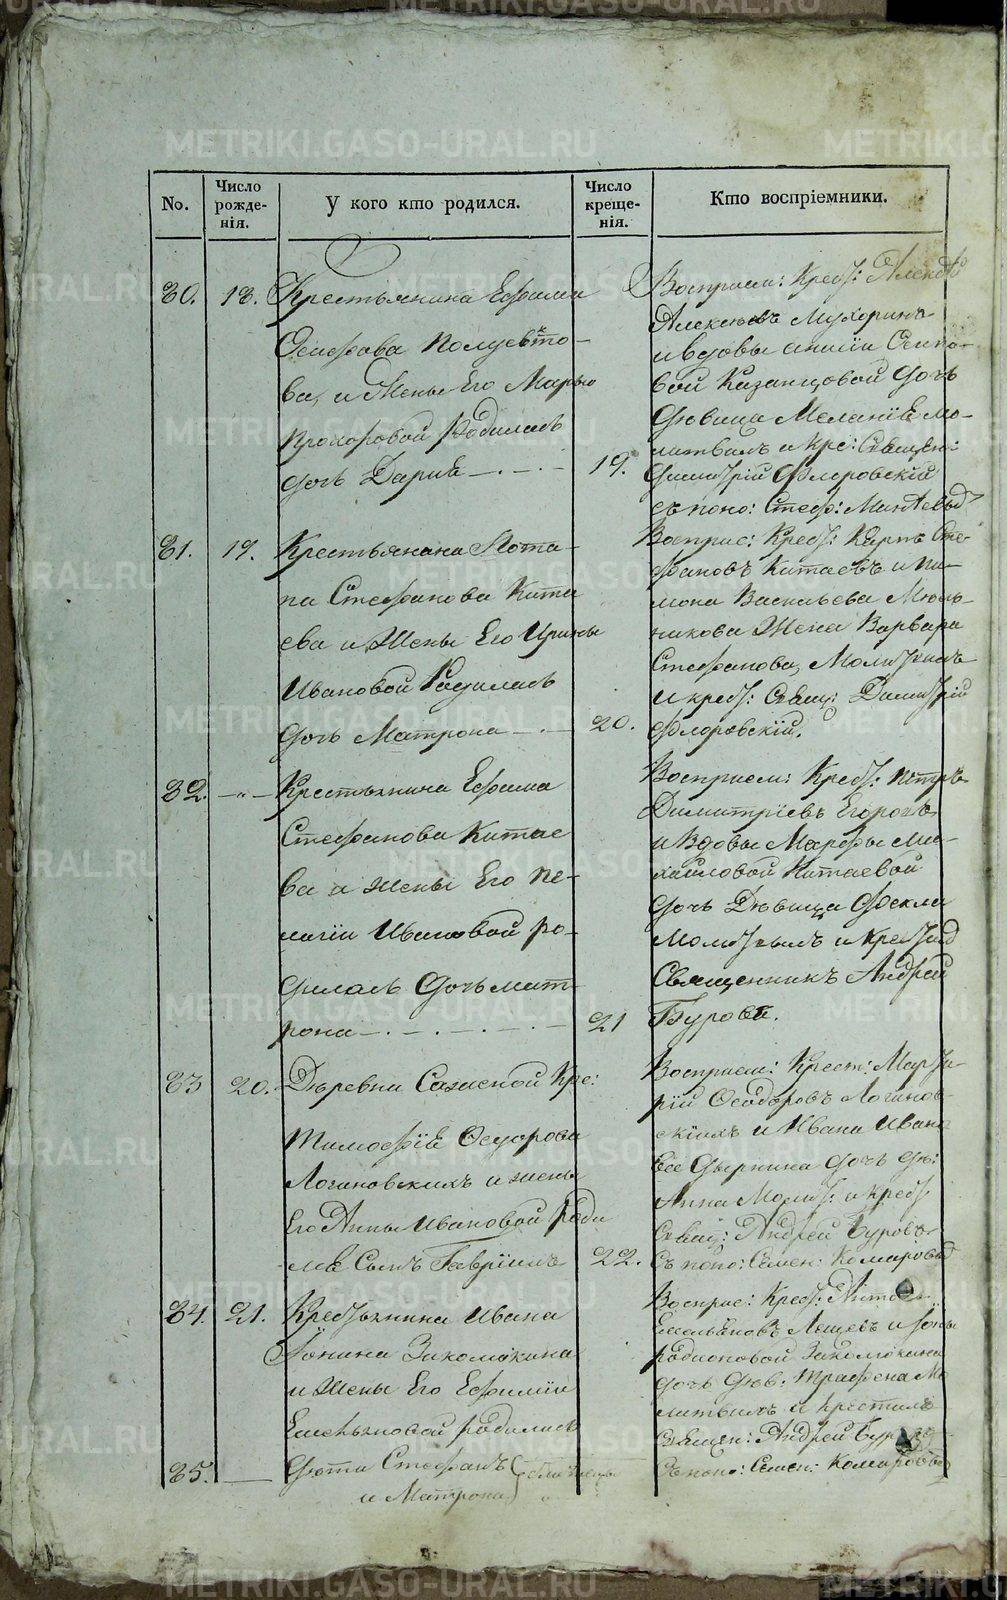 No.
Число рожде-нія.
У кого кто родился.
Число креще-нія.
Кто воспріемники.
30.
18.
Крестьянина Ефима
Осифова Полуевкто-
ва, и Жены Его Марьи
Прохоровой Родилась
дочь Дарья
19.
Восприем: Крест:
Алексеевъ Мухоринъ
и вдовы Осипо-
вой Казанцовой дочь
девица Меланія мо-
литвилъ и кре: Священ:
Димитрій Флоровскій
съ поно: Стеф:
31.
19.
Крестьянина Пота-
па Стефанова Кита
ева и Жены Его Ирины
Ивановой Родилась
дочь Матрона
20.
Восприе: Крест: Карпъ Сте-
фановъ Китаевъ и
Васильева Мель-
никова Жена Варвара
Стефанова, Молитвилъ
и крест: Свящ: Димитрій
Флоровскій.
32.
Крестьянина Ефима
Стефанова Китае
ва и жены Его Пе-
лагіи Ивановой ро-
дилась дочь Мат-
рона
21
Восприем: Крест: Петръ
Димитріевъ Егоровъ
и Вдовы Марфы Ми-
хайловой Китаевой
дочь Девица Фекла
Молитвилъ и Крестилъ
Священникъ Андрей
Буровъ.
33
20.
Деревни Кре:
Тимофея Федорова
Логиновскихъ и жены
Его Анны Ивановой роди
ля Сынъ Гавріилъ
22.
Восприем: Крест:
рій Феодоровъ Логинов-
скихъ и Ивана Ивано
дочь де:
Анна Молит: и Крест
Свящ: Андрей Буровъ
Съ поно: Семен: Комаровы
34.
21.
Крестьянина Ивана
Закомокина
и Жены Его Ефиміи
Емельяновой родились
Восприе: Крест:
Емельяновъ и
родионовой Закомокина
дочь дев:
литвилъ и крестилъ
Священ: Андрей Буровъ
Съ поно: Семен: Комаровы
35.
дети Стефанъ близнецы
и Матрона
METRIKI.GASO-URAL.RU